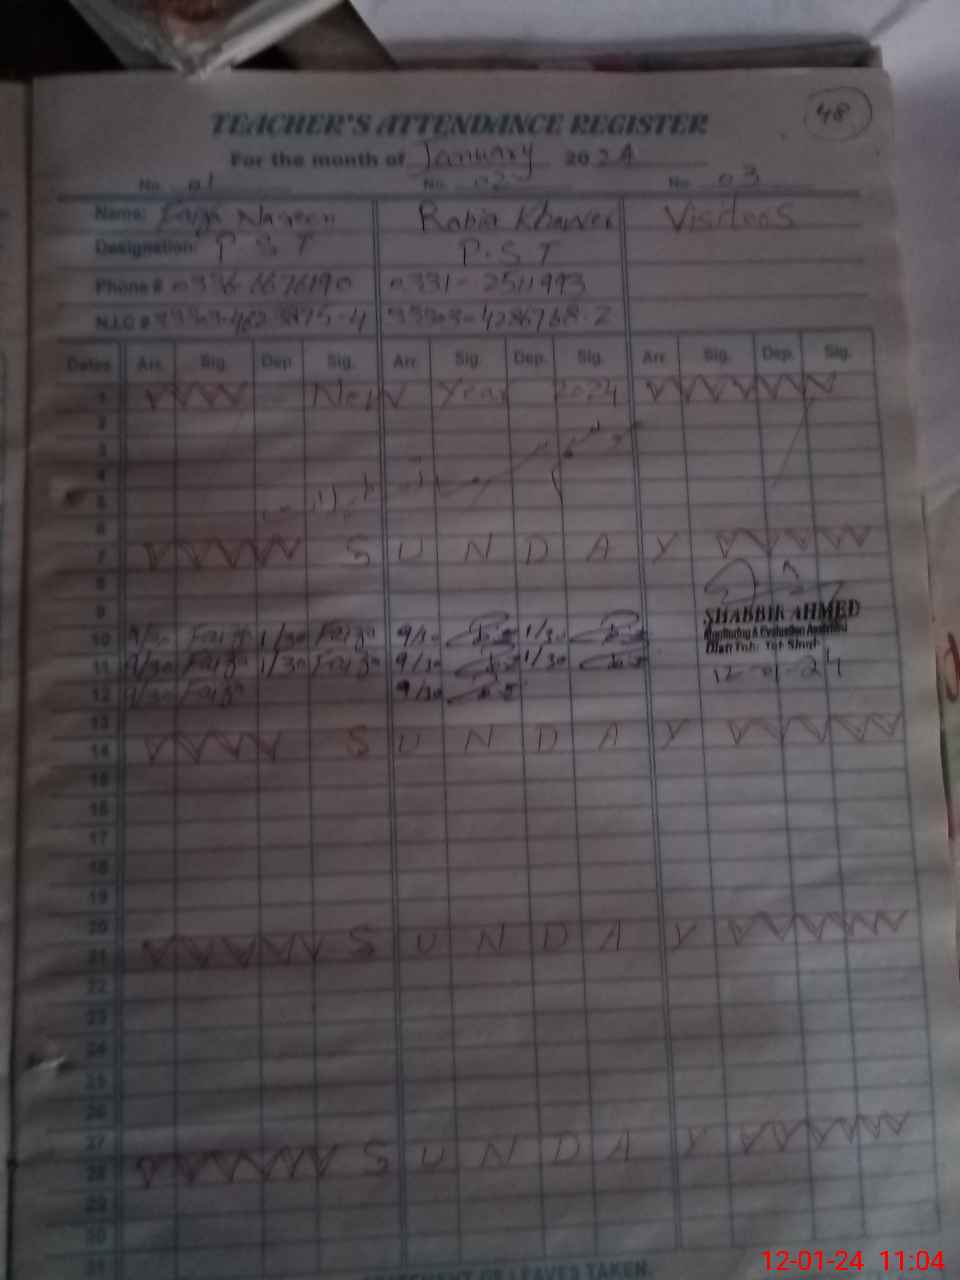 48
TEACHER'S ATTENDANCE REGISTER
For the month of January 2024
No. 01 No. 02 No. 03
Name: Faiza Nasreen Rabia Khawer Visitors
Designation: P S T P.S T
Phone # 0336-6676190 0331-2511993
N.I.C #
Dates Arr. Sig. Dep. Sig. Arr. Sig. Dep. Sig. Arr. Sig. Dep. Sig.
1 New Year 2024
2
3
4
5
6
7 S U N D A Y
8
9 SHABBIR AHMED
Monitoring & Evaluation Assistant
10 9/30 Faiza 1/30 Faiza 9/30 1/30
Distt Tob: Tek Singh
11 9/30 Faiza 1/30 Faiza 9/30 1/30 12-01-24
12 9/30 Faiza 9/30
13
14 S U N D A Y
15
16
17
18
19
20
21 S U N D A Y
22
23
24
25
26
27
28 S U N D A Y
29
30
OF LEAVES TAKEN.
12-01-24 11:04